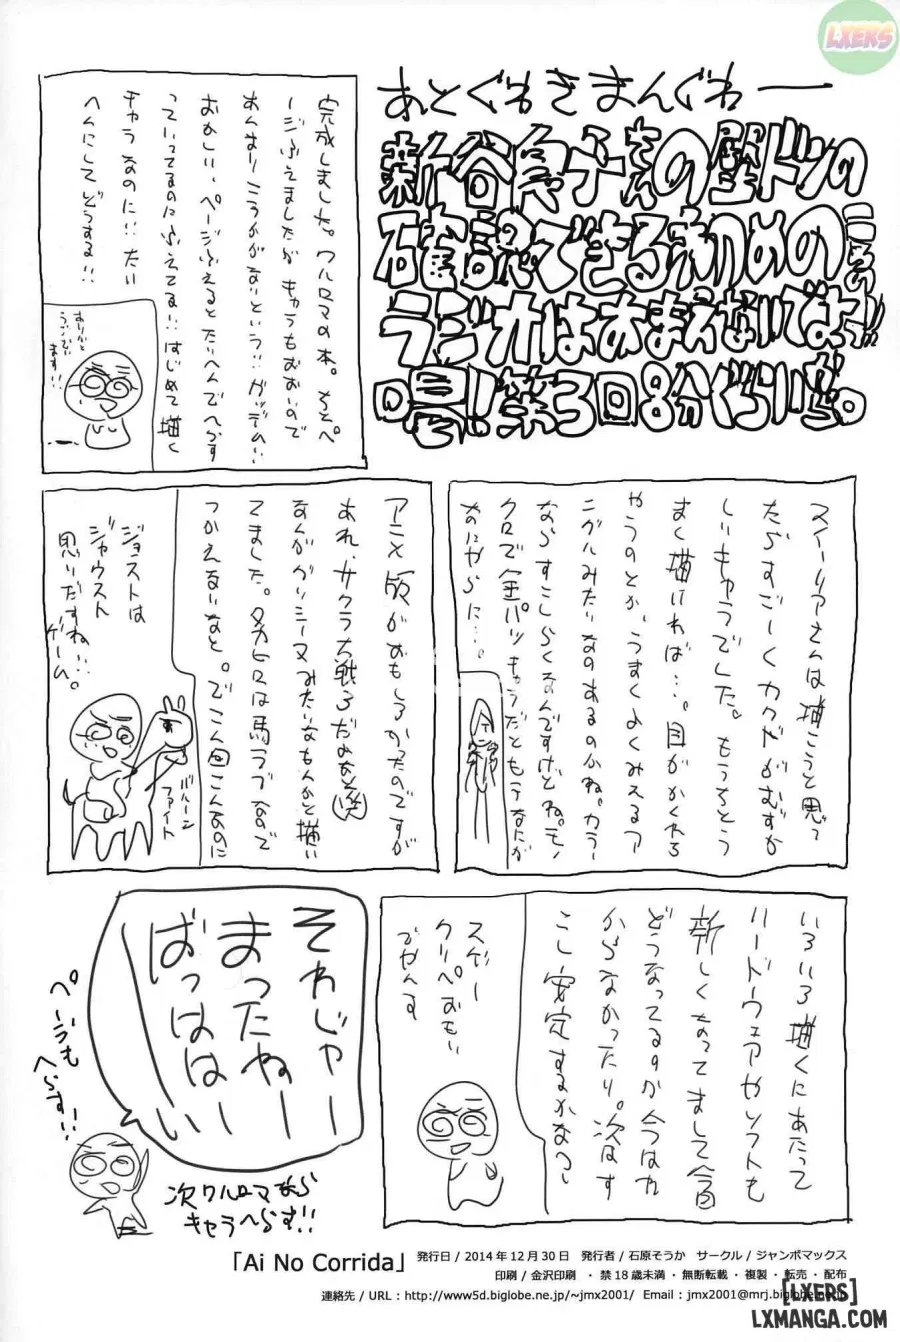 あとぐわきまんぐわー
新谷良子さんの壁ドンの
確認できる初めての
ラジオはあまえないでよっ!!
喝!!第3回8分ぐらい
完成しました。ワルロマの本。ちとペ
ージふえましたが キャラもおおいので
あんまりこうかがないという!!ガッデム!!
おかしい、ページふえるとたいへんでへらす
っていってるのにふえてる!!はじめて描く
キャラなのに!!たい
へんにしてどうする!!
ありがと
うござい
ます!!
スイーリアさんは描こうと思っ
たらすごーくカクどがむずか
しいキャラでした。もうちょっとう
まく描ければ…。目がかくれる
やつのとか、うまくよくみえるア
ングルみたいなのあるのかね。カラー
ならすこしらくなんですけどね。モノ
クロで金パツキャラだともうなにが
なにやらに…。
アニメ版がおもしろかったのですが
あれ、サクラ大戦3だよな(笑)
なんかグリシーヌみたいなもんかと描い
てました。タカヒロは馬ラブなので
つかえるないなと。でこん回こんなのに
ジョストは
ジャウスト
思いだすね!!
ゲーム。
バルーン
ファイト
いろいろ描くにあたって
ハードウェアやソフトも
新しくなってまして今回
どうなってるのか今はわ
からなかったり。次はす
こし安定するかな?
スゲー
クリペおもい
でやんす
そわじゃー
まったねー
ばっははーい
ページも
へらす!!
次ワルロマなら
キャラへらす!!
「Ai No Corrida」 発行日 / 2014 年 12 月 30 日 発行者 / 石原そうか サークル / ジャンボマックス
印刷 / 金沢印刷 ・ 禁 18 歳未満 ・ 無断転載 ・ 複製 ・ 転売 ・ 配布
連絡先 / URL : http://www5d.biglobe.ne.jp/~jmx2001/ Email : jmx2001@mrj.biglobe.ne.jp
LXERS
[LXERS]
LXMANGA.COM